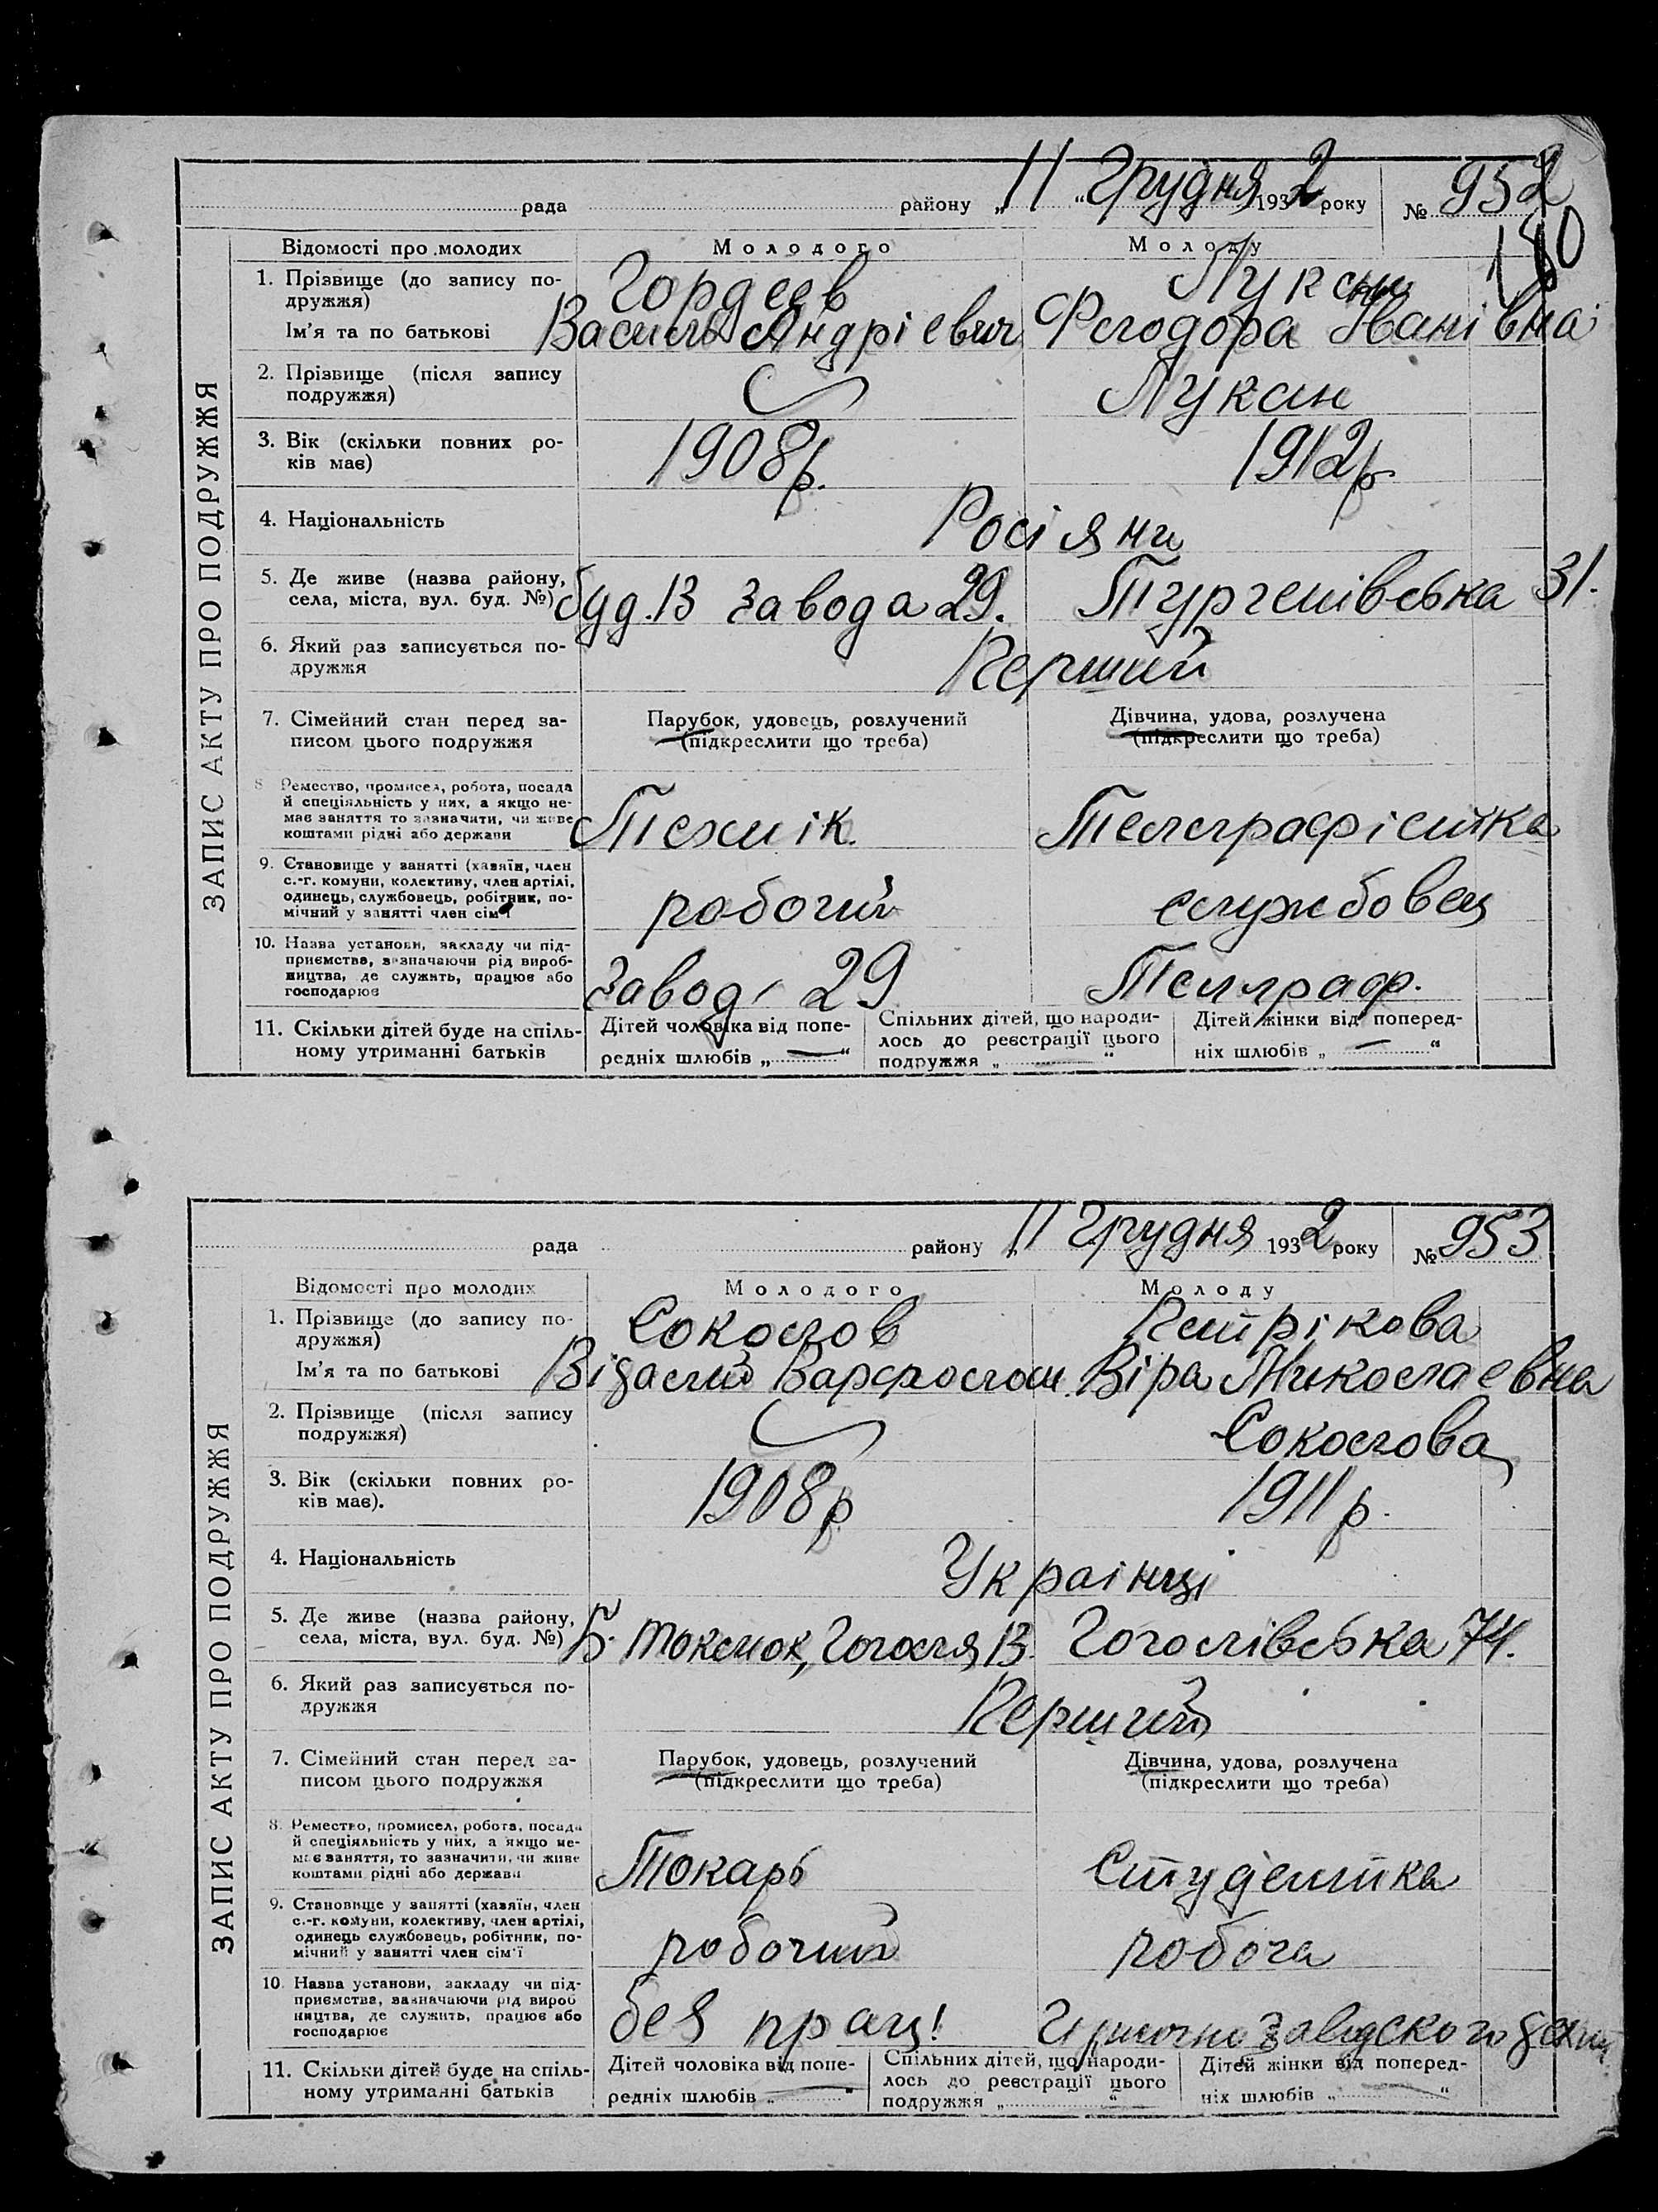 рада району „11“ Грудня 1932 року № 952
180
ЗАПИС АКТУ ПРО ПОДРУЖЖЯ
Відомості про молодих Молодого Молоду
1. Прізвище (до запису по-
дружжя) Гордеєв Лукан
Ім'я та по батькові Василь Андрієвич Феодора Іванівна
2. Прізвище (після запису
подружжя) Лукан
3. Вік (скільки повних ро-
ків має) 1908р. 1912р.
4. Національність Росіяни
5. Де живе (назва району,
села, міста, вул. буд. №) буд. 13 завода 29. Тургенівська 31.
6. Який раз записується по-
дружжя Перший
7. Сімейний стан перед за-
писом цього подружжя
Парубок, удовець, розлучений
(підкреслити що треба)
Дівчина, удова, розлучена
(підкреслити що треба)
8 Ремество, промисел, робота, посада
й спеціяльність у них, а якщо не-
має заняття то зазначити, чи живе
коштами рідні або держави
Технік Телеграфістка
9. Становище у занятті (хазяїн, член
с.-г. комуни, колективу, член артілі,
одинець, службовець, робітник, по-
мічний у занятті член сім'ї
робочий службовец
10. Назва установи, закладу чи під-
приємства, зазначаючи рід вироб-
ництва, де служить, працює або
господарює
Завод 29 Телеграф.
11. Скільки дітей буде на спіль-
ному утриманні батьків
Дітей чоловіка від попе-
редніх шлюбів „ — “
Спільних дітей, що народи-
лось до реєстрації цього
подружжя „ “
Дітей жінки від поперед-
ніх шлюбів „ — “
рада району „11 Грудня 1932 року № 953
ЗАПИС АКТУ ПРО ПОДРУЖЖЯ
Відомості про молодих Молодого Молоду
1. Прізвище (до запису по-
дружжя) Соколов Петрікова
Ім'я та по батькові Віталій Варфолом. Віра Миколаєвна
2. Прізвище (після запису
подружжя) Соколова
3. Вік (скільки повних ро-
ків має). 1908р 1911р.
4. Національність Українці
5. Де живе (назва району,
села, міста, вул. буд. №) Б. Токмок, Гоголя 13. Гоголівська 74.
6. Який раз записується по-
дружжя Перший
7. Сімейний стан перед за-
писом цього подружжя
Парубок, удовець, розлучений
(підкреслити що треба)
Дівчина, удова, розлучена
(підкреслити що треба)
8. Ремество, промисел, робота, посада
й спеціяльність у них, а якщо не-
має заняття, то зазначити, чи живе
коштами рідні або держави
Токарь Студентка
9. Становище у занятті (хазяїн, член
с.-г. комуни, колективу, член артілі,
одинець службовець, робітник, по-
мічний у занятті член сім'ї
робочий робоча
10. Назва установи, закладу чи під-
приємства, зазначаючи рід вироб
ництва, де служить, працює або
господарює
без праці
11. Скільки дітей буде на спіль-
ному утриманні батьків
Дітей чоловіка від попе-
редніх шлюбів „ “
Спільних дітей, що народи-
лось до реєстрації цього
подружжя „ “
Дітей жінки від поперед-
ніх шлюбів „ “